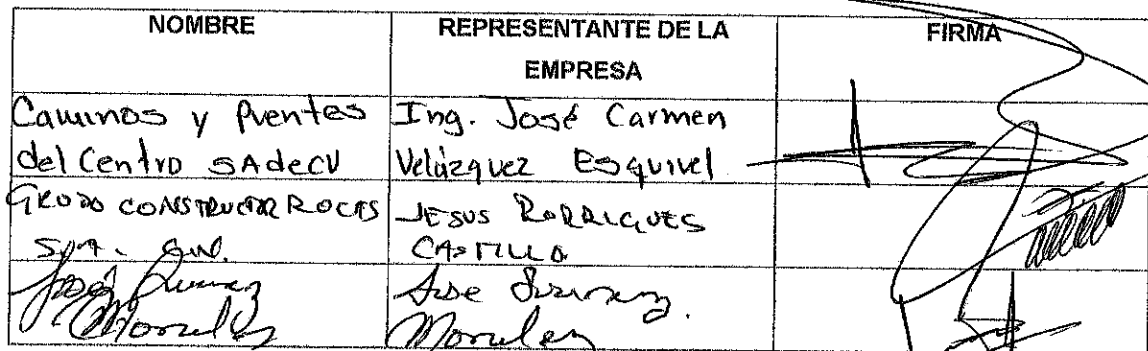 NOMBRE
REPRESENTANTE DE LA
EMPRESA
FIRMA
Caminos y Puentes
del Centro SAdeCV
Ing. José Carmen
Velázquez Esquivel
CONSTRUCTOR
S.A.
JESUS RODRIGUES
CASTILLO
José
Morales
Jose
Morales